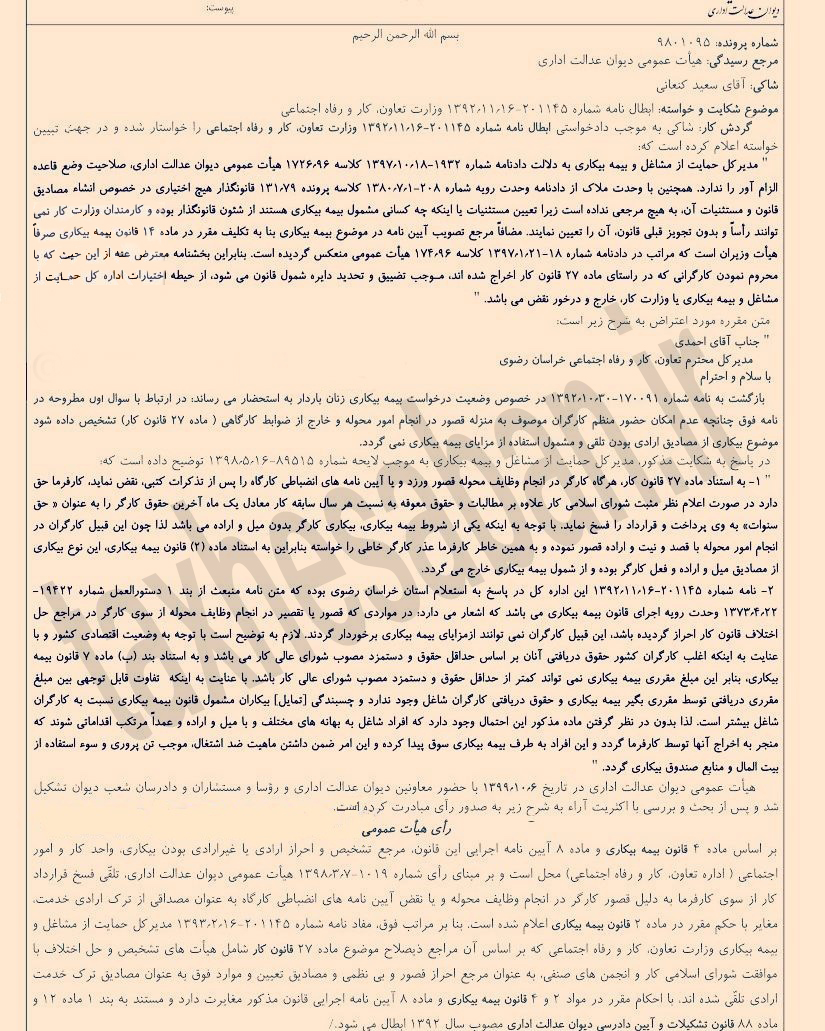 دیوان عدالت اداری
پیوست:
بسم الله الرحمن الرحیم
شماره پرونده: ۹۸۰۱۰۹۵
مرجع رسیدگی: هیأت عمومی دیوان عدالت اداری
شاکی: آقای سعید کنعانی
موضوع شکایت و خواسته: ابطال نامه شماره ۲۰۱۱۴۵-۱۳۹۲،۱۱،۱۶ وزارت تعاون، کار و رفاه اجتماعی
گردش کار: شاکی به موجب دادخواستی ابطال نامه شماره ۲۰۱۱۴۵-۱۳۹۲،۱۱،۱۶ وزارت تعاون، کار و رفاه اجتماعی را خواستار شده و در جهت تبیین
خواسته اعلام کرده است که:
" مدیرکل حمایت از مشاغل و بیمه بیکاری به دلالت دادنامه شماره ۱۹۳۲-۱۳۹۷،۱۰،۱۸ کلاسه ۱۷۲۶،۹۶ هیأت عمومی دیوان عدالت اداری، صلاحیت وضع قاعده
الزام آور را ندارد. همچنین با وحدت ملاک از دادنامه وحدت رویه شماره ۲۰۸-۱۳۸۰،۷،۱ کلاسه پرونده ۱۳۱،۷۹ قانونگذار هیچ اختیاری در خصوص انشاء مصادیق
قانون و مستثنیات آن، به هیچ مرجعی نداده است زیرا تعیین مستثنیات یا اینکه چه کسانی مشمول بیمه بیکاری هستند از شئون قانونگذار بوده و کارمندان وزارت کار نمی
توانند رأساً و بدون تجویز قبلی قانون، آن را تعیین نمایند. مضافاً مرجع تصویب آیین نامه در موضوع بیمه بیکاری بنا به تکلیف مقرر در ماده ۱۴ قانون بیمه بیکاری صرفاً
هیأت وزیران است که مراتب در دادنامه شماره ۱۸-۱۳۹۷،۱،۲۱ کلاسه ۱۷۴،۹۶ هیأت عمومی منعکس گردیده است. بنابراین بخشنامه معترض عنه از این حیث که با
محروم نمودن کارگرانی که در راستای ماده ۲۷ قانون کار اخراج شده اند، موجب تضییق و تحدید دایره شمول قانون می شود، از حیطه اختیارات اداره کل حمایت از
مشاغل و بیمه بیکاری یا وزارت کار، خارج و درخور نقض می باشد. "
متن مقرره مورد اعتراض به شرح زیر است:
" جناب آقای احمدی
مدیرکل محترم تعاون، کار و رفاه اجتماعی خراسان رضوی
با سلام و احترام
بازگشت به نامه شماره ۱۷۰۰۹۱-۱۳۹۲،۱۰،۳۰ در خصوص وضعیت درخواست بیمه بیکاری زنان باردار به استحضار می رساند: در ارتباط با سوال اول مطروحه در
نامه فوق چنانچه عدم امکان حضور منظم کارگران موصوف به منزله قصور در انجام امور محوله و خارج از ضوابط کارگاهی ( ماده ۲۷ قانون کار) تشخیص داده شود
موضوع بیکاری از مصادیق ارادی بودن تلقی و مشمول استفاده از مزایای بیمه بیکاری نمی گردد.
در پاسخ به شکایت مذکور، مدیرکل حمایت از مشاغل و بیمه بیکاری به موجب لایحه شماره ۸۹۵۱۵-۱۳۹۸،۵،۱۶ توضیح داده است که:
" ۱- به استناد ماده ۲۷ قانون کار، هرگاه کارگر در انجام وظایف محوله قصور ورزد و یا آیین نامه های انضباطی کارگاه را پس از تذکرات کتبی، نقض نماید، کارفرما حق
دارد در صورت اعلام نظر مثبت شورای اسلامی کار علاوه بر مطالبات و حقوق معوقه به نسبت هر سال سابقه کار معادل یک ماه آخرین حقوق کارگر را به عنوان « حق
سنوات» به وی پرداخت و قرارداد را فسخ نماید. با توجه به اینکه یکی از شروط بیمه بیکاری، بیکاری کارگر بدون میل و اراده می باشد لذا چون این قبیل کارگران در
انجام امور محوله با قصد و نیت و اراده قصور نموده و به همین خاطر کارفرما عذر کارگر خاطی را خواسته بنابراین به استناد ماده (۲) قانون بیمه بیکاری، این نوع بیکاری
از مصادیق میل و اراده و فعل کارگر بوده و از شمول بیمه بیکاری خارج می گردد.
۲- نامه شماره ۲۰۱۱۴۵-۱۳۹۲،۱۱،۱۶ این اداره کل در پاسخ به استعلام استان خراسان رضوی بوده که متن نامه منبعث از بند ۱ دستورالعمل شماره ۱۹۴۲۲-
۱۳۷۳،۴،۲۲ وحدت رویه اجرای قانون بیمه بیکاری می باشد که اشعار می دارد: در مواردی که قصور یا تقصیر در انجام وظایف محوله از سوی کارگر در مراجع حل
اختلاف قانون کار احراز گردیده باشد، این قبیل کارگران نمی توانند ازمزایای بیمه بیکاری برخوردار گردند. لازم به توضیح است با توجه به وضعیت اقتصادی کشور و با
عنایت به اینکه اغلب کارگران کشور حقوق دریافتی آنان بر اساس حداقل حقوق و دستمزد مصوب شورای عالی کار می باشد و به استناد بند (ب) ماده ۷ قانون بیمه
بیکاری، بنابر این مبلغ مقرری بیمه بیکاری نمی تواند کمتر از حداقل حقوق و دستمزد مصوب شورای عالی کار باشد. با عنایت به اینکه تفاوت قابل توجهی بین مبلغ
مقرری دریافتی توسط مقرری بگیر بیمه بیکاری و حقوق دریافتی کارگران شاغل وجود ندارد و چسبندگی [تمایل] بیکاران مشمول قانون بیمه بیکاری نسبت به کارگران
شاغل بیشتر است. لذا بدون در نظر گرفتن ماده مذکور این احتمال وجود دارد که افراد شاغل به بهانه های مختلف و با میل و اراده و عمداً مرتکب اقداماتی شوند که
منجر به اخراج آنها توسط کارفرما گردد و این افراد به طرف بیمه بیکاری سوق پیدا کرده و این امر ضمن داشتن ماهیت ضد اشتغال، موجب تن پروری و سوء استفاده از
بیت المال و منابع صندوق بیکاری گردد. "
هیأت عمومی دیوان عدالت اداری در تاریخ ۱۳۹۹،۱۰،۶ با حضور معاونین دیوان عدالت اداری و رؤسا و مستشاران و دادرسان شعب دیوان تشکیل
شد و پس از بحث و بررسی با اکثریت آراء به شرح زیر به صدور رأی مبادرت کرده است.
رأی هیأت عمومی
بر اساس ماده ۴ قانون بیمه بیکاری و ماده ۸ آیین نامه اجرایی این قانون، مرجع تشخیص و احراز ارادی یا غیرارادی بودن بیکاری، واحد کار و امور
اجتماعی ( اداره تعاون، کار و رفاه اجتماعی) محل است و بر مبنای رأی شماره ۱۰۱۹-۱۳۹۸/۳/۷ هیأت عمومی دیوان عدالت اداری، تلقّی فسخ قرارداد
کار از سوی کارفرما به دلیل قصور کارگر در انجام وظایف محوله و یا نقض آیین نامه های انضباطی کارگاه به عنوان مصداقی از ترک ارادی خدمت،
مغایر با حکم مقرر در ماده ۲ قانون بیمه بیکاری اعلام شده است. بنا بر مراتب فوق، مفاد نامه شماره ۲۰۱۱۴۵-۱۳۹۳،۲،۱۶ مدیرکل حمایت از مشاغل و
بیمه بیکاری وزارت تعاون، کار و رفاه اجتماعی که بر اساس آن مراجع ذیصلاح موضوع ماده ۲۷ قانون کار شامل هیأت های تشخیص و حل اختلاف با
موافقت شورای اسلامی کار و انجمن های صنفی، به عنوان مرجع احراز قصور و بی نظمی و مصادیق تعیین و موارد فوق به عنوان مصادیق ترک خدمت
ارادی تلقّی شده اند، با احکام مقرر در مواد ۲ و ۴ قانون بیمه بیکاری و ماده ۸ آیین نامه اجرایی قانون مذکور مغایرت دارد و مستند به بند ۱ ماده ۱۲ و
ماده ۸۸ قانون تشکیلات و آیین دادرسی دیوان عدالت اداری مصوب سال ۱۳۹۲ ابطال می شود./